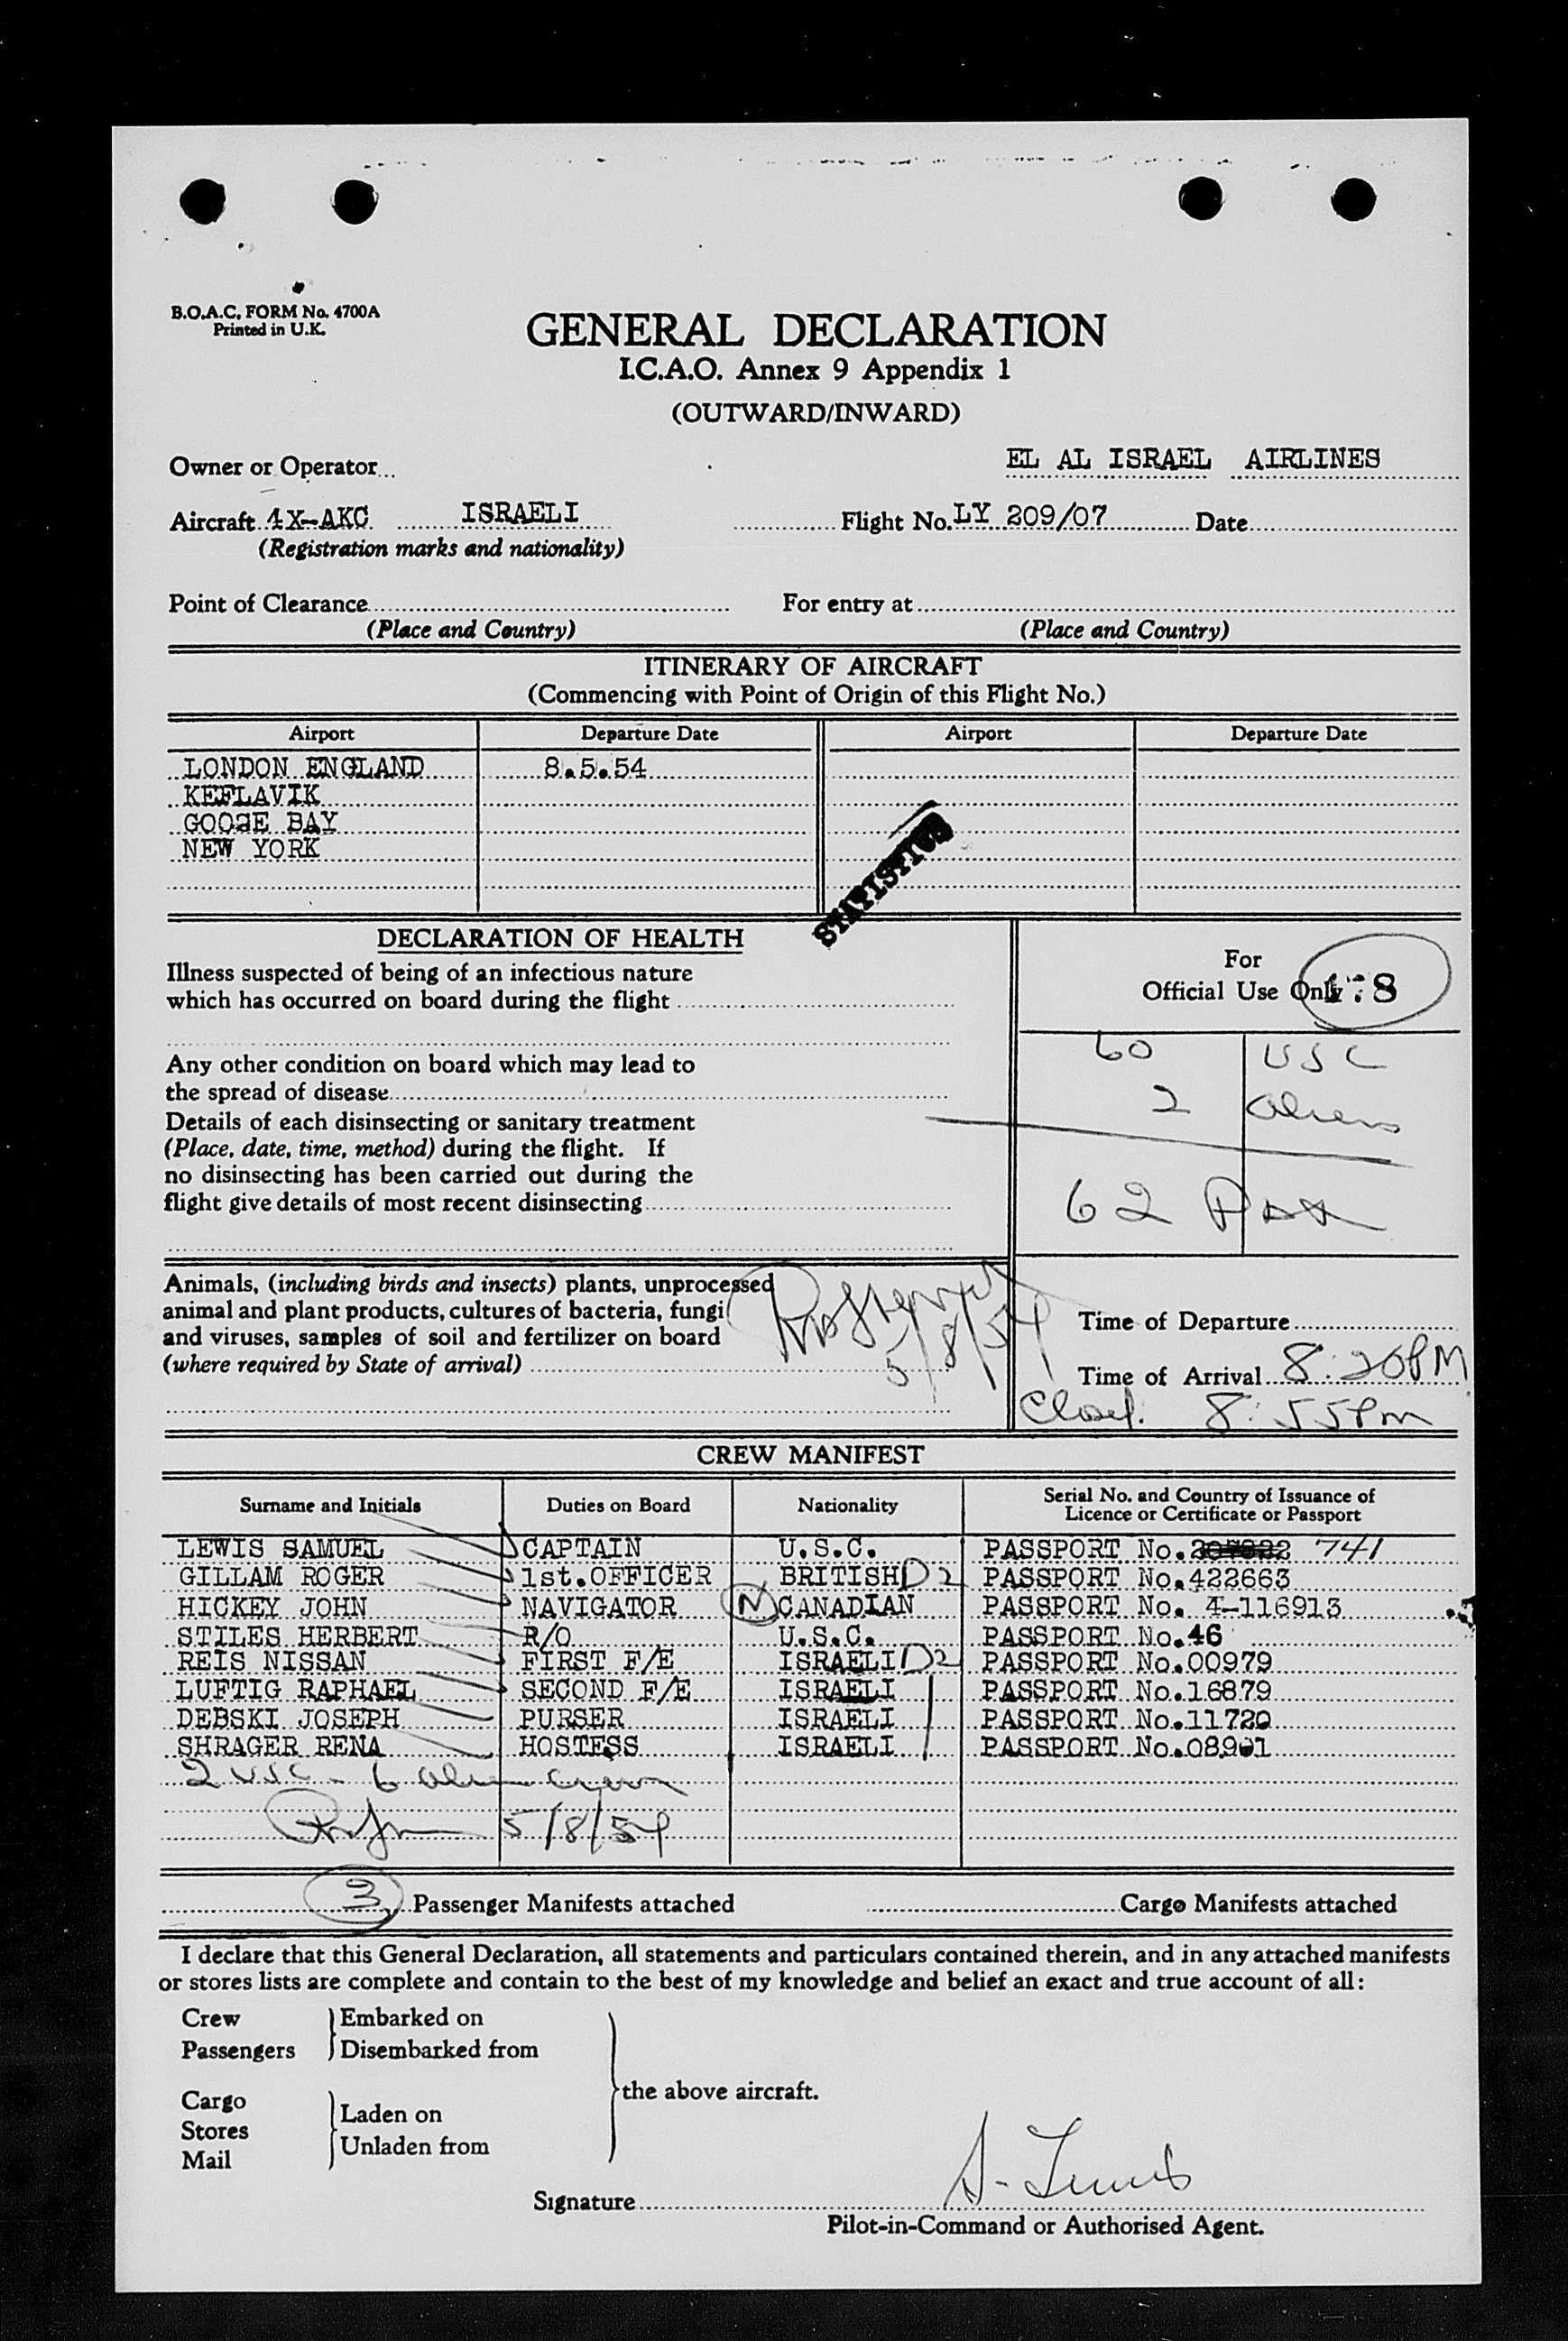 B.O.A.C. FORM No. 4700A
Printed in U.K.
GENERAL DECLARATION
I.C.A.O. Annex 9 Appendix 1
(OUTWARD/INWARD)
Owner or Operator EL AL ISRAEL AIRLINES
Aircraft 4X-AKC ISRAELI Flight No. LY 209/07 Date
(Registration marks and nationality)
Point of Clearance For entry at
(Place and Country) (Place and Country)
ITINERARY OF AIRCRAFT
(Commencing with Point of Origin of this Flight No.)
Airport Departure Date Airport Departure Date
LONDON ENGLAND 8.5.54
KEFLAVIK
GOOSE BAY
NEW YORK
STATISTICS
DECLARATION OF HEALTH
Illness suspected of being of an infectious nature
which has occurred on board during the flight
Any other condition on board which may lead to
the spread of disease
Details of each disinsecting or sanitary treatment
(Place, date, time, method) during the flight. If
no disinsecting has been carried out during the
flight give details of most recent disinsecting
For
Official Use Only
60 USC
2 Aliens
62 Pax
Animals, (including birds and insects) plants, unprocessed
animal and plant products, cultures of bacteria, fungi
and viruses, samples of soil and fertilizer on board
(where required by State of arrival)
5/8/54
Time of Departure
Time of Arrival 8:20PM
Closed. 8:55Pm
CREW MANIFEST
Surname and Initials Duties on Board Nationality Serial No. and Country of Issuance of
Licence or Certificate or Passport
LEWIS SAMUEL CAPTAIN U.S.C. PASSPORT No. 741
GILLAM ROGER 1st.OFFICER BRITISH D2 PASSPORT No.422663
HICKEY JOHN NAVIGATOR N CANADIAN PASSPORT No. 4-116913
STILES HERBERT R/O U.S.C. PASSPORT No.46
REIS NISSAN FIRST F/E ISRAELI D2 PASSPORT No.00979
LUFTIG RAPHAEL SECOND F/E ISRAELI PASSPORT No.16879
DEBSKI JOSEPH PURSER ISRAELI PASSPORT No.11720
SHRAGER RENA HOSTESS ISRAELI PASSPORT No.08901
2 USC - 6 alien crew
5/8/54
3 Passenger Manifests attached Cargo Manifests attached
I declare that this General Declaration, all statements and particulars contained therein, and in any attached manifests
or stores lists are complete and contain to the best of my knowledge and belief an exact and true account of all:
Crew Embarked on
Passengers Disembarked from
the above aircraft.
Cargo
Stores
Mail
Laden on
Unladen from
S. Lewis
Signature
Pilot-in-Command or Authorised Agent.